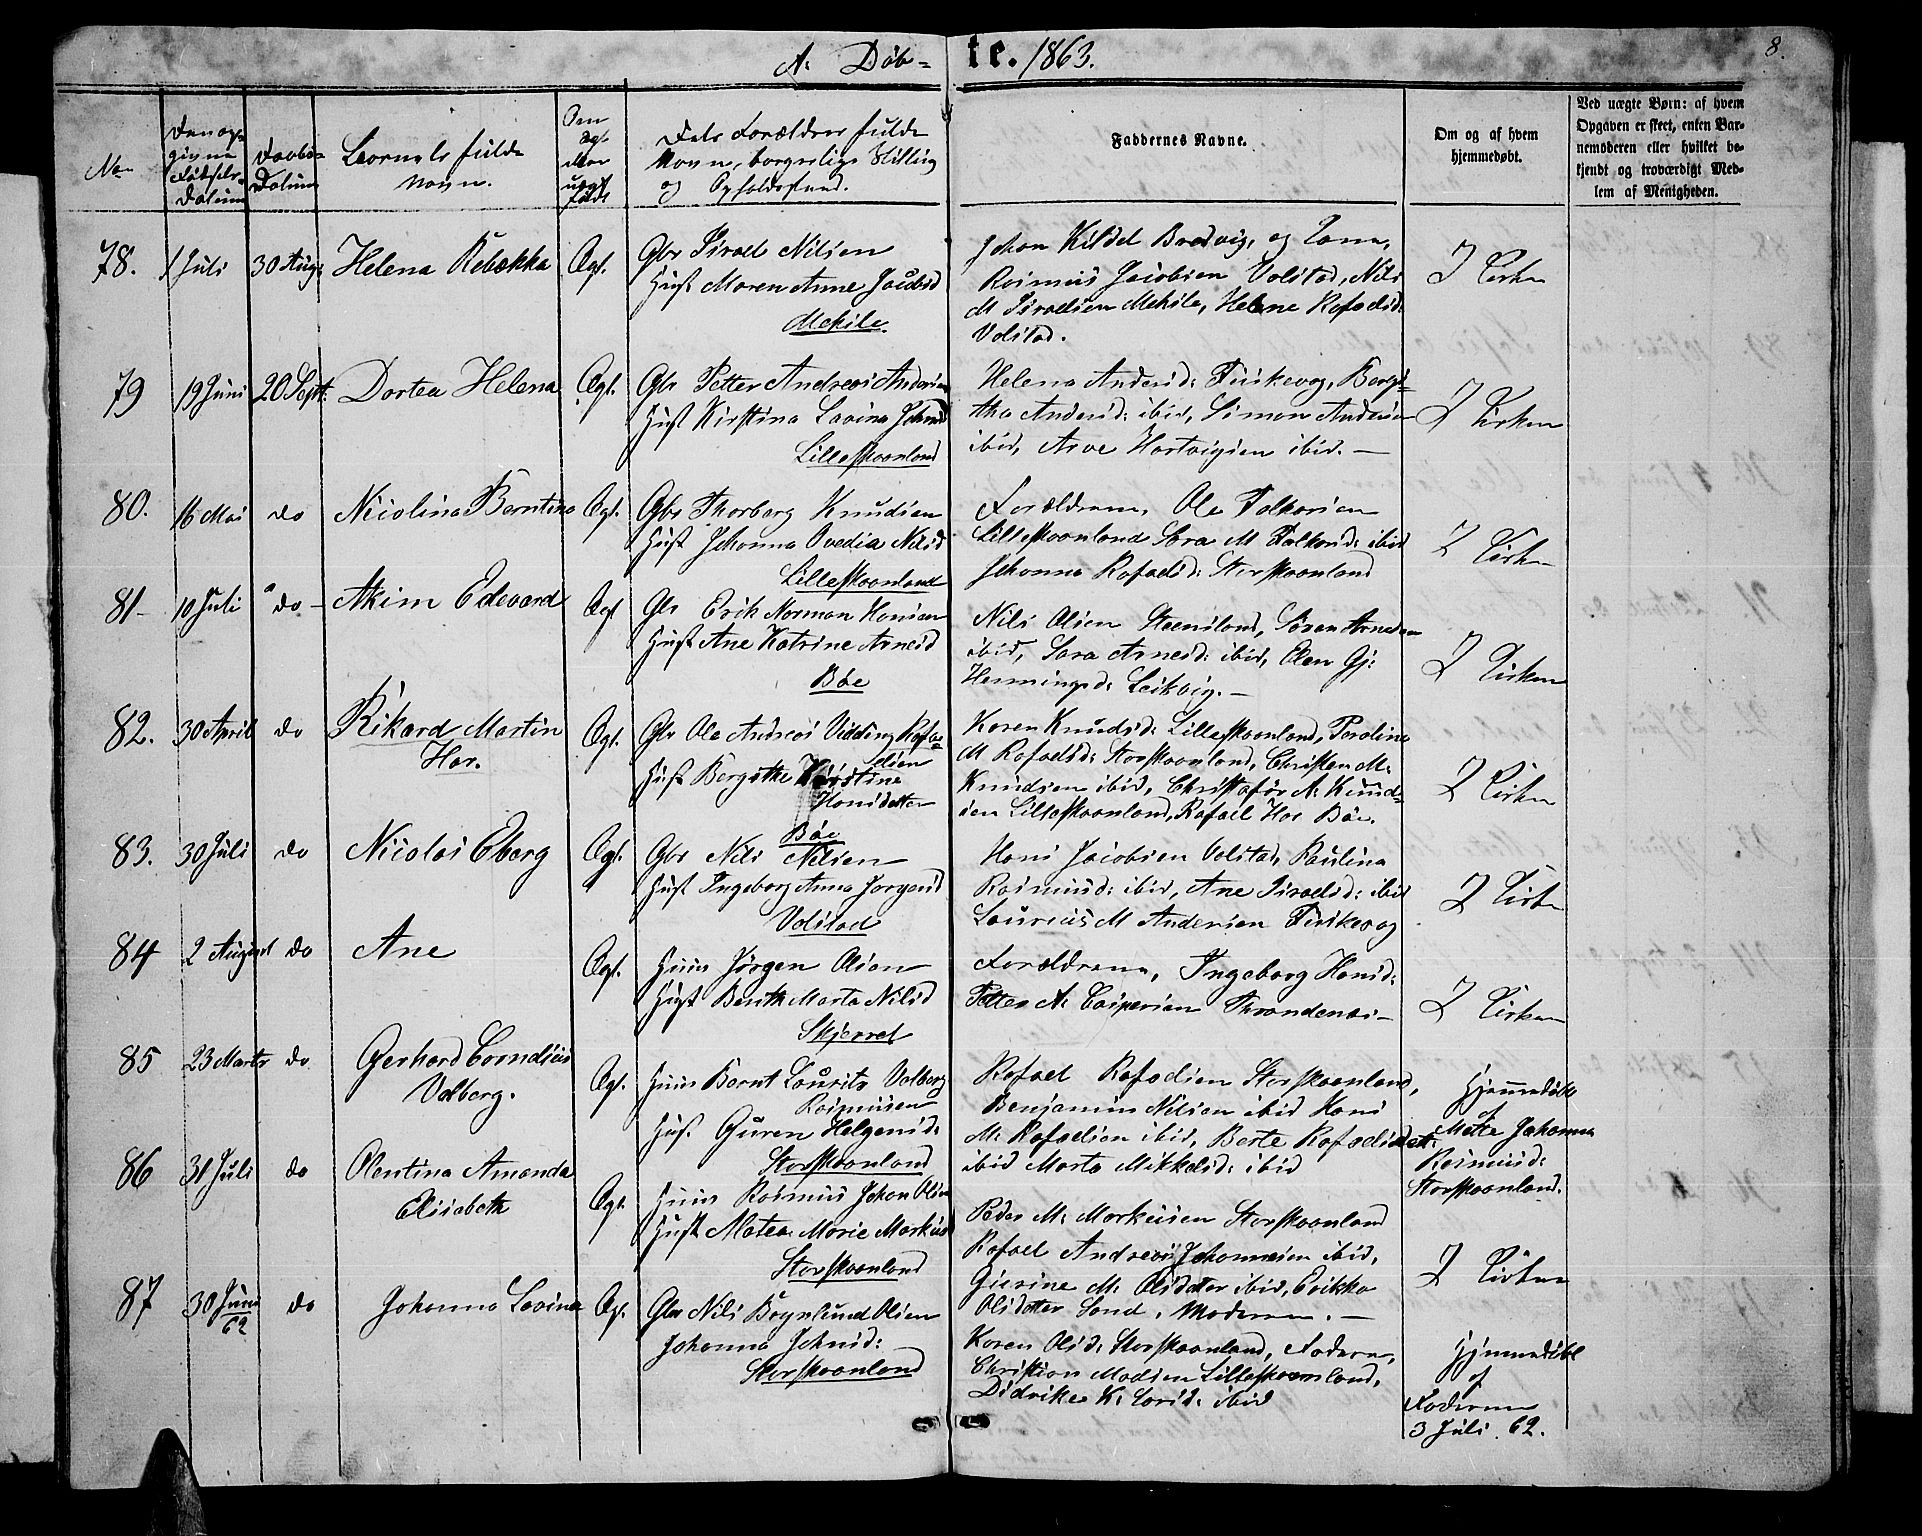 8.
A. Døb-
te. 1863.
No
Den op-
givne
Fødsels-
Datum
Daabs-
Datum
Barnets fulde
Navn.
Om
ægt.
eller
uægt.
født
Dets Forældres fulde
Navn, borgerlige Stilling
og Opholdssted.
Faddernes Navne.
Om og af hvem
hjemmedøbt.
Ved uægte Børn: af hvem
Opgaven er skeet, enten Bar-
nemoderen eller hvilket be-
kjendt og troværdigt Med-
lem af Menigheden.
78. 1 Juli 30 Aug: Helena Rebækka Ægt.
Gbr Israel Nilsen
Hust Maren Anne Jacobsd
Mekile
Johan Kildal Bredvig, og Kone,
Rasmus Jacobsen Volstad, Nils
M Israelsen Mekile, Helene Rafaelsd:
Volstad.
I Kirken
79 19 Juni 20 Sept: Dortea Helena Ægt.
Gbr Petter Andreas Andersen
Hust Kirstina Lavina Johnsd
Lilleskaanland
Helena Andersd: Fiskevog, Bergi-
tha Andersd: ibid, Simon Andersen
ibid, Arve Hartvigsen ibid. —
I Kirken
80. 16 Mai do Nicolina Berntina Ægt.
Gbr Thorberg Knudsen
Hust Johanna Ovedia Nilsd
Lilleskaanland
Forældrene, Ole Falkorsen
Lilleskaanland Sara M Falkorsd: ibid
Johanna Rafaelsd: Storskaanland
I Kirken
81- 10 Juli do- Akim Edevard Ægt
Gbr Erik Norman Hansen
Hust Ane Katrine Arnesd
Bøe
Nils Olsen Steensland, Søren Arnesen
ibid, Sara Arnesd: ibid, Elen Gj:
Hemmingsd: Leikvig. —
I Kirken
82. 30 April do Rikard Martin
Har.
Ægt.
Gbr Ole Andreas Vidding Rafae-
lsen
Hust Bergithe Kirstine
Hansdatter
Bøe
Karen Knudsd: Lilleskaanland, Peroline
M Rafaelsd: Storskaanland, Christen M:
Knudsen ibid, Christofør A: Knud-
sen Lilleskaanland, Rafael Har Bøe.
I Kirken
83. 30 Juli do Nicolai Eberg Ægt.
Gbr Nils Nilsen
Hust Ingeborg Anna Jorgensd
Volstad
Hans Jacobsen Volstad, Paulina
Rasmusd: ibid, Ane Israelsd: ibid
Laurius M Andersen Fiskevog
I Kirken
84 2 August do Ane Ægt.
Huus Jørgen Olsen
Hust Berith Marta Nilsd
Skjerret
Forældrene, Ingeborg Hansd:
Petter A: Caspersen Throndenæs —
I Kirken
85 23 Marts do Gerhard Cornelius
Valberg.
Ægt.
Huus Bernt Laurits Valberg
Rasmusen
Hus. Guren Helgesd:
Storskaanland
Rafael Rafaelsen Storskaanland,
Benjamin Nilsen ibid Hans
M: Rafaelsen ibid, Berte Rafaelsdatt:
ibid Marta Mikkelsd: ibid
Hjemmedøbt
af
Mette Johanna
Rasmusd:
Storskaanland.
86 31 Juli do Olentina Amanda
Elisabeth
Ægt.
Huus Rasmus Johan Olsen
Hust Matea Marie Markusd
Storskaanland
Peder M: Markusen Storskaanland
Rafael Andreas Johannesen ibid,
Gurine M: Olsdatter ibid, Erikka
Olsdatter Sand, Moderen. —
I Kirken
87 30 Juni
62
do Johanna Lavina Ægt.
Gbr Nils Boynlund Olsen
Johanna Johnsd:
Storskaanland
Karen Olsd: Storskaanland, Faderen,
Christian Madsen Lilleskaanland,
Didrikke K: Larsd: ibid
Hjemmedøbt
af
Faderen
3 Juli 62.